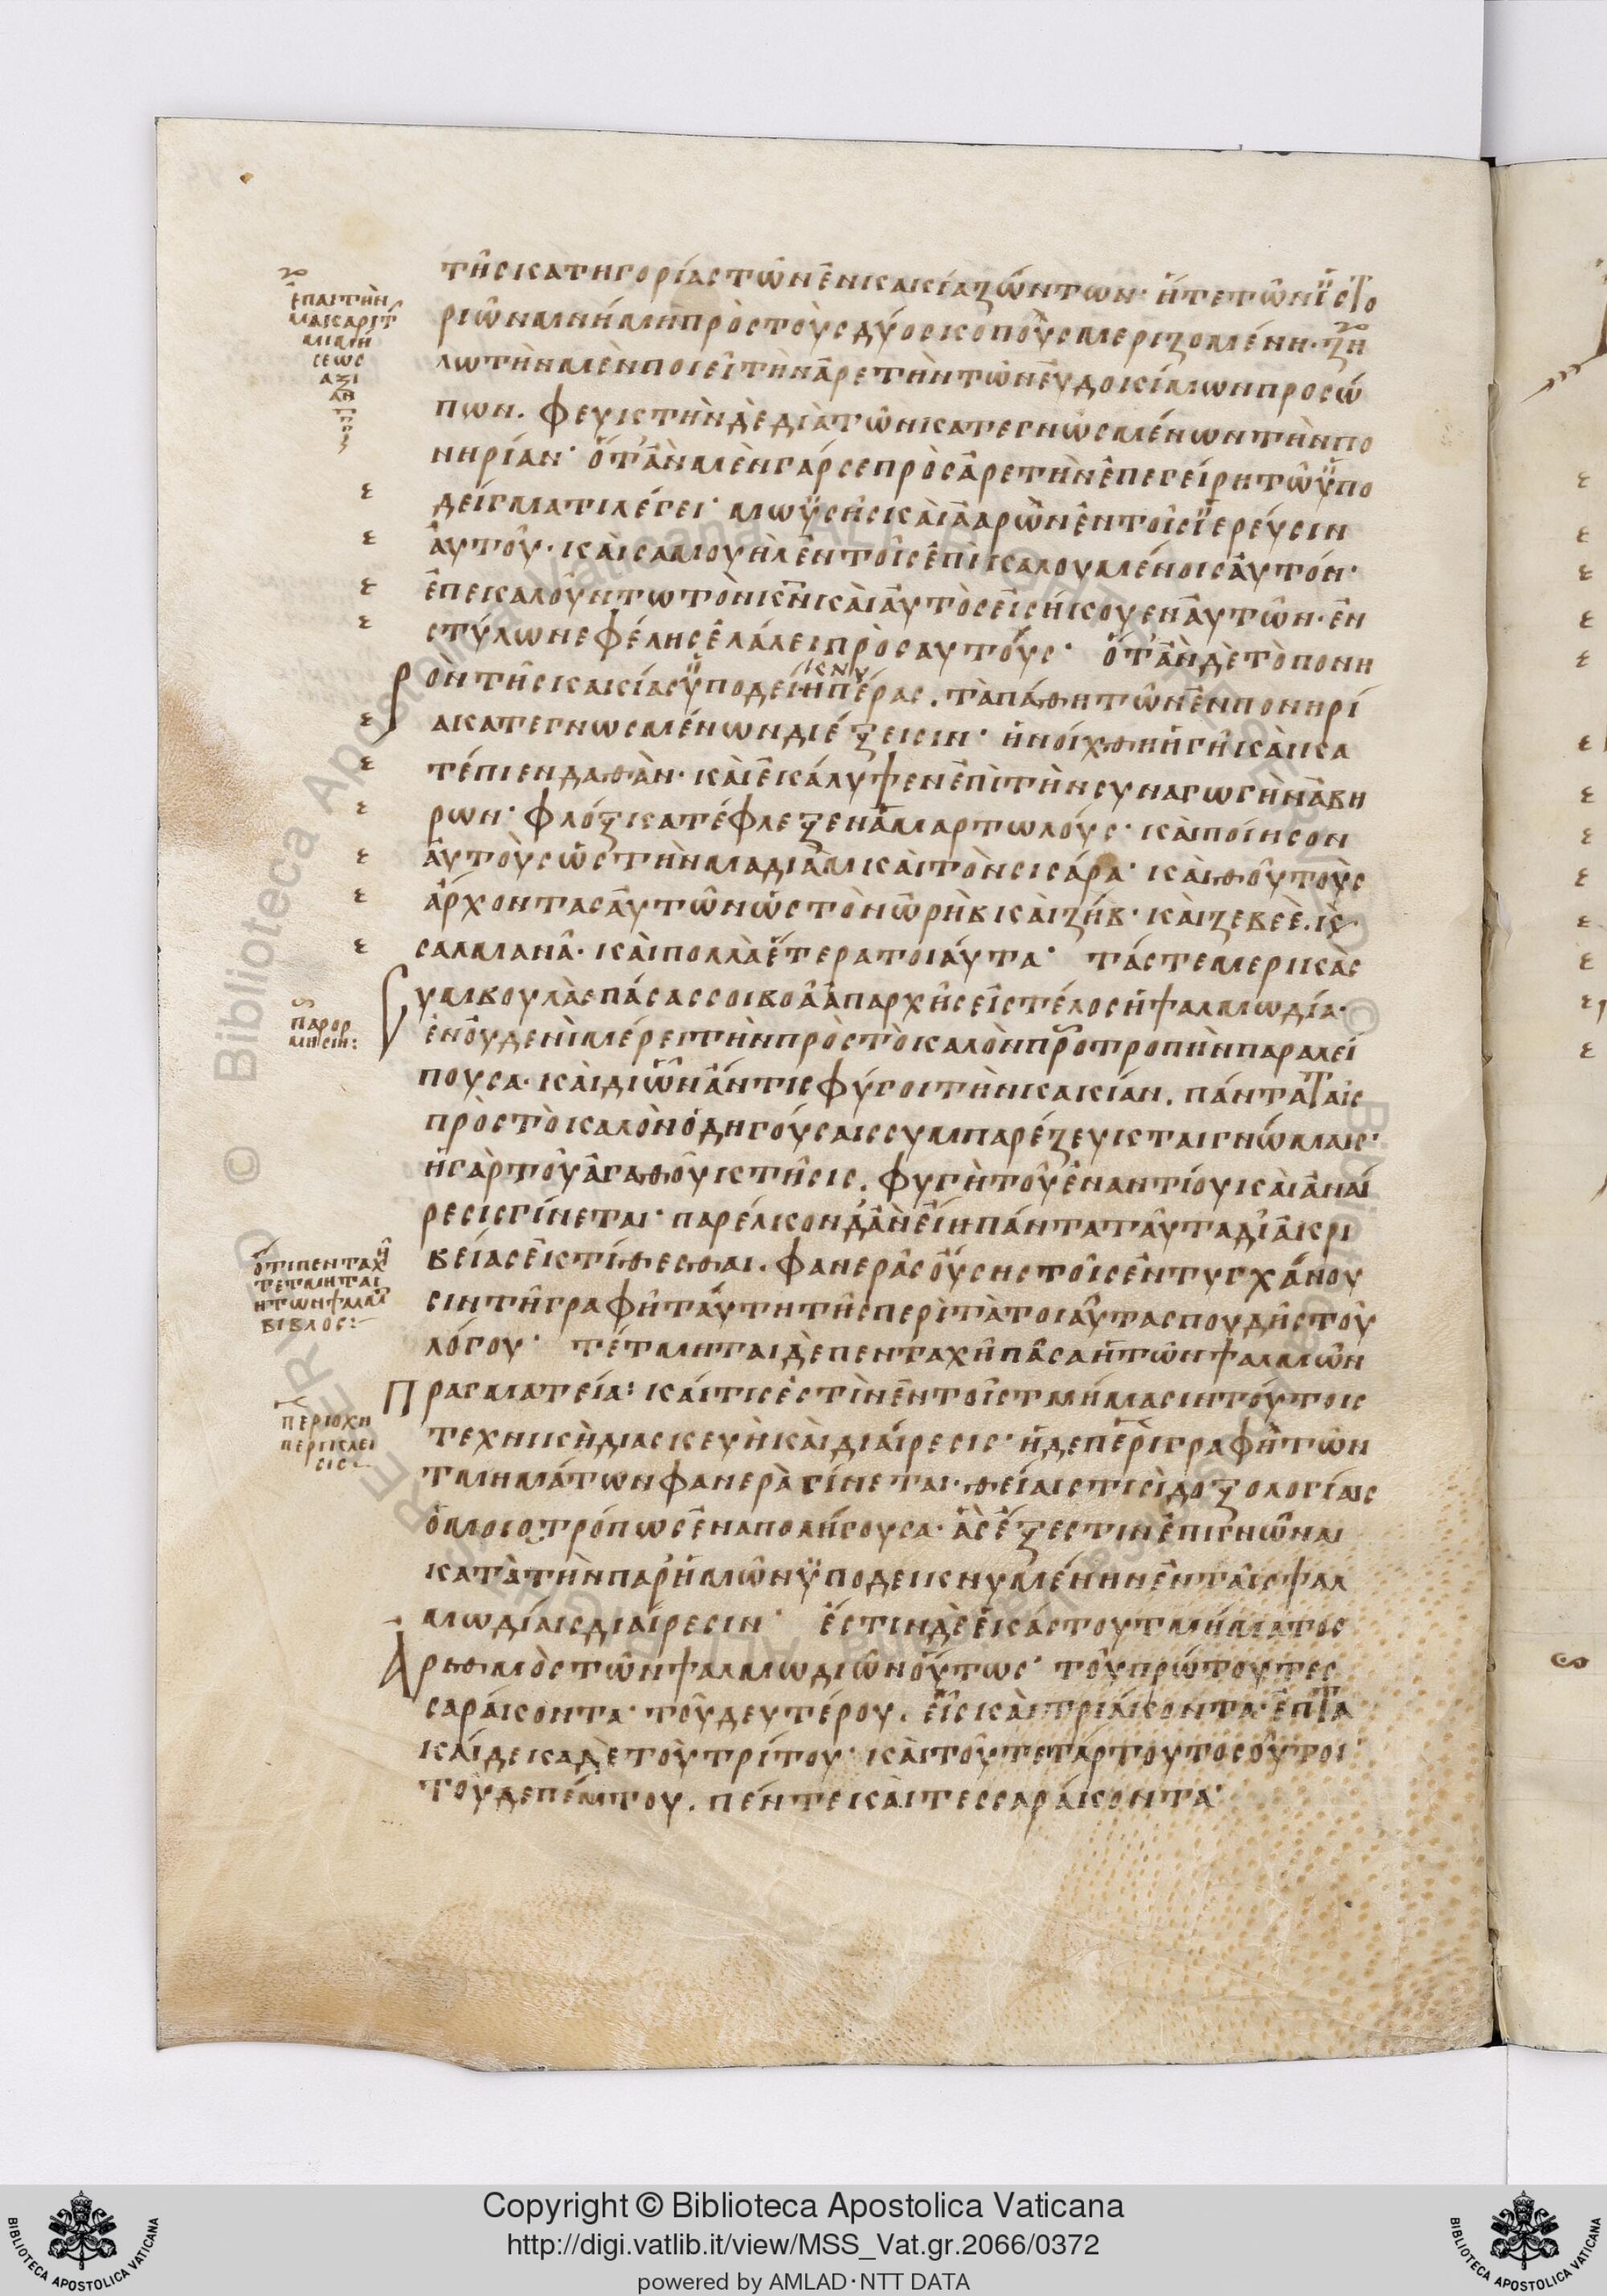 τῆς κατηγορίας τῶν ἐν κακία ζώντων· ἥτε τῶν ϊστο
ριῶν μνήμη πρὸς τοὺς δύο σκοποὺς μεριζομένη· ζη
λωτὴν μὲν ποιεῖ τὴν ἀρετὴν τῶν εὐδοκίμων προσώ
πων. φευκτὴν δὲ διὰ τῶν κατεγνωσμένων τὴν πο
νηρίαν· ὅταν μὲν γάρ σε πρὸς ἀρετὴν ἐπεγείρη τῶ ϋπο
δείγματι λέγει· μωϋσῆς καὶ ἀαρὼν ἐν τοῖς ϊερεύσιν
ἀυτοῦ· καὶ σαμουὴλ ἐν τοῖς ἐπικαλουμένοις ἀυτόν·
ἐπεκαλοῦντω τὸν κν̄ καὶ ἀυτὸς εἰσήκουεν ἀυτῶν· ἐν
στύλω νεφέλης ἐλάλει πρὸς αυτούς· ὅταν δὲ τὸ πονη
ρον τῆς κακίας ϋποδεικνύη πέρας. τὰ πάθη τῶν ἐν πονηρί
α κατεγνωσμένων διέξεισιν· ἠνοίχθη ἡ γῆ καὶ κα
τέπιεν δαθὰν· καὶ ἐκάλυψεν ἐπὶ τὴν συναγωγὴν ἀβη
ρων· φλόξ κατέφλεξεν ἁμαρτωλούς· καὶ ποίησον
ἀυτοὺς ὡς τὴν μαδιὰμ καὶ τὸν σισάρα· καὶ θοῦ τοὺς
ἄρχοντας ἀυτῶν ὡς τὸν ὠρὴβ καὶ ζήβ· καὶ ζεβεὲ. κ̀
σαλμανᾶ· καὶ πολλὰ ἕτερα τοιάυτα· τάς τε μερικὰς
συμβουλὰς πάσας σοι βοᾶ ἀπαρχῆς εἰς τέλος ἡ ψαλμωδία·
ἐν οὐδενὶ μέρει τὴν πρὸς τὸ καλὸν προτροπὴν παραλεί
πουσα· καὶ διῶν ἄν τις φύγοι τὴν κακίαν. πάντα ταῖς
πρὸς τὸ καλὸν ὁδηγούσαις συμπαρέζευκται γνώμαις·
ἡ γὰρ τοῦ ἀγαθοῦ κτῆσις. φυγὴ τοῦ ἐναντίου καὶ ἀναί
ρεσις γίνεται· παρέλκον δ̓ ἂν εἴη πάντα ταῦτα δϊ ἀκρι
βείας ἐκτίθεσθαι. φανερᾶς οὔσης τοῖς ἐντυγχάνου
σιν τῆ γραφῆ ταύτη τῆς περὶ τὰ τοιαῦτα σπουδῆς τοῦ
λόγου· τέτμηται δὲ πενταχῆ πᾶσα ἡ τῶν ψαλμῶν
πραγματεία: καί τις ἐστὶν ἐν τοῖς τμήμασιν τούτοις
τεχνικὴ διασκευὴ καὶ διαίρεσις· ἡ δὲ περιγραφὴ τῶν
τμημάτων φανερὰ γίνεται· θείαις τισὶ δοξολογίαις
ὁμοιοτρόπως ἐναπολήγουσα· ἃς ἔξεστιν ἐπιγνῶναι
κατὰ τὴν παῤ ἡμῶν ϋποδεικνυμένην ἐν ταῖς ψαλ
μωδίαις διαίρεσιν· ἔστιν δὲ ἑκάστου τμήματος
Ἀριθμὸς τῶν ψαλμωδιῶν οὕτως· τοῦ πρώτου τεσ
σαράκοντα· τοῦ δευτέρου. εἷς καὶ τριάκοντα· ἑπτα
καίδεκα δὲ τοῦ τρίτου· καὶ τοῦ τετάρτου τοσοῦτοι·
τοῦ δὲ πέμτου. πέντε καὶ τεσσαράκοντα·
πάρορ
μησιν:
ὅτι πενταχῆ
τέτμηται
η των ψαλμ
βίβλος:
περιοχη
περικλει
σις
Copyright © Biblioteca Apostolica Vaticana
http://digi.vatlib.it/view/MSS_Vat.gr.2066/0372
powered by AMLAD·NTT DATA